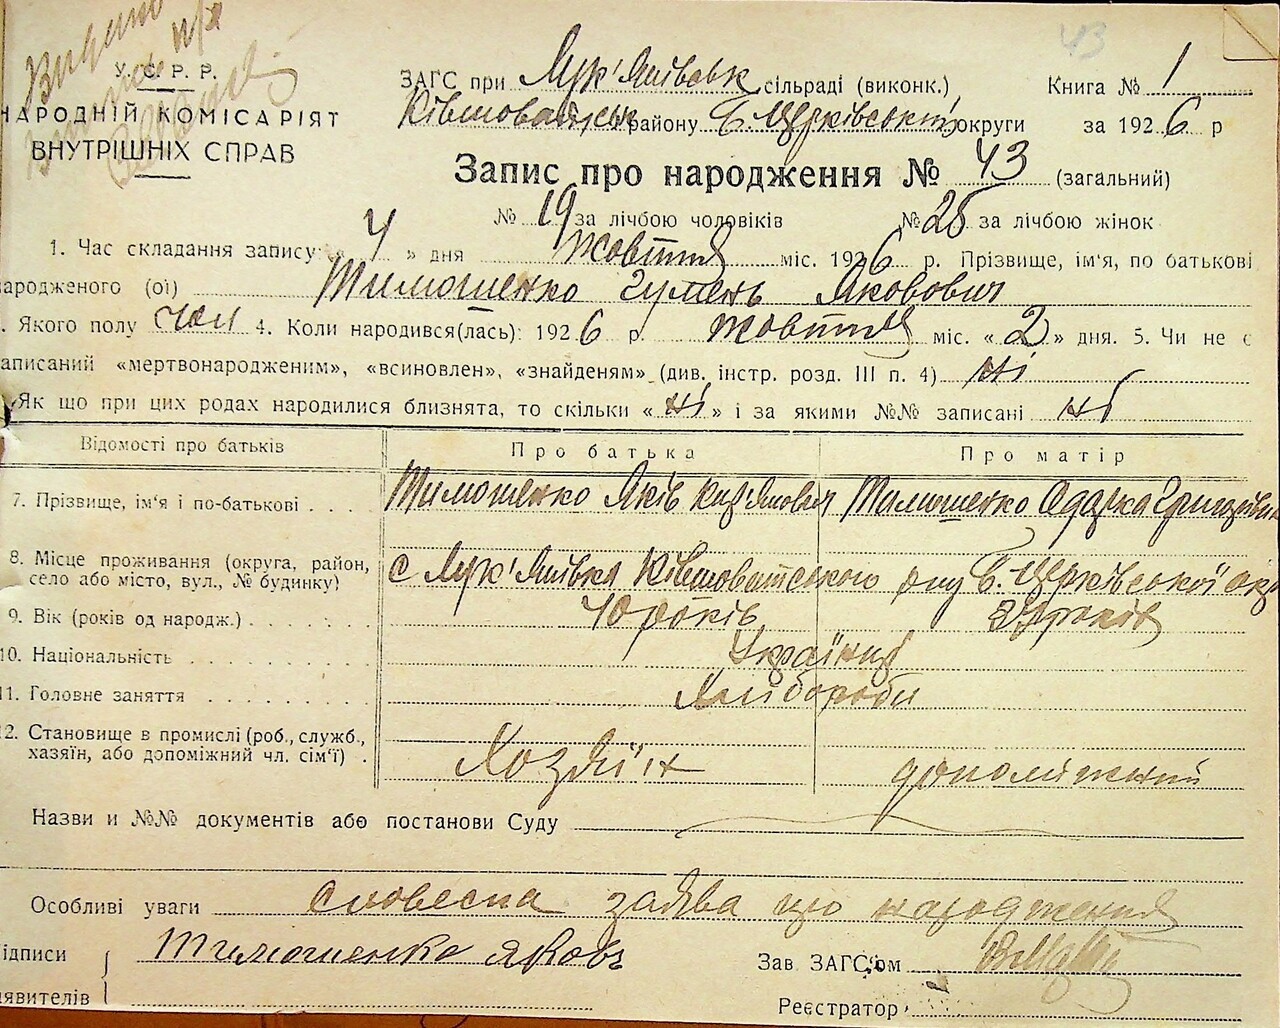 У. С. Р. Р.
НАРОДНІЙ КОМІСАРІЯТ
ВНУТРІШНІХ СПРАВ
43
ЗАГС при Лук'янівськ сільраді (виконк.) Книга № 1
району Б. Церківської округи за 1926 р
Запис про народження № 43 (загальний)
№ 19 за лічбою чоловіків № 25 за лічбою жінок
1. Час складання запису: « 4 » дня жовтня міс. 1926 р. Прізвище, ім'я, по батькові
народженого (ої) Тимошенко Якович
. Якого полу чол 4. Коли народився(лась): 1926 р. жовтня міс. «2» дня. 5. Чи не є
записаний «мертвонародженим», «всиновлен», «знайденям» (див. інстр. розд. III п. 4) ні
Як що при цих родах народилися близнята, то скільки « ні » і за якими №№ записані ні
Відомості про батьків Про батька Про матір
7. Прізвище, ім'я і по-батькові Тимошенко Яків Тимошенко Одарка
8. Місце проживання (округа, район,
село або місто, вул., № будинку) с Лук'янівка Ківшоватського р-ну Б. Церківської окр
9. Вік (років од народж.) 40 років років
10. Національність Українці
11. Головне заняття Хлібороби
12. Становище в промислі (роб., служб.,
хазяїн, або допоміжний чл. сім'ї) Хозяїн допоміжний
Назви и №№ документів або постанови Суду
Особливі уваги словесна заява про народження
підписи Тимошенко Яковъ Зав ЗАГС'ом
заявителів Реєстратор